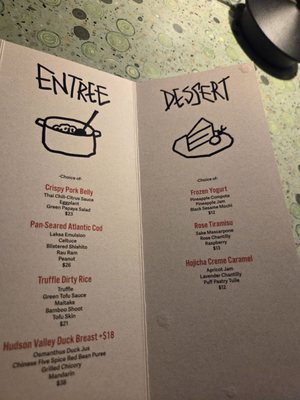 ENTREE
-Choice of-
Crispy Pork Belly
Thai Chili-Citrus Sauce
Eggplant
Green Papaya Salad
$23
Pan-Seared Atlantic Cod
Laksa Emulsion
Celtuce
Blistered Shishito
Rau Ram
Peanut
$26
Truffle Dirty Rice
Truffle
Green Tofu Sauce
Maitake
Bamboo Shoot
Tofu Skin
$21
Hudson Valley Duck Breast +$18
Osmanthus Duck Jus
Chinese Five Spice Red Bean Puree
Grilled Chicory
Mandarin
$38
DESSERT
-Choice of-
Frozen Yogurt
Pineapple Compote
Pineapple Jam
Black Sesame Mochi
$12
Rose Tiramisu
Sake Mascarpone
Rose Chantilly
Raspberry
$13
Hojicha Creme Caramel
Apricot Jam
Lavender Chantilly
Puff Pastry Tuile
$12